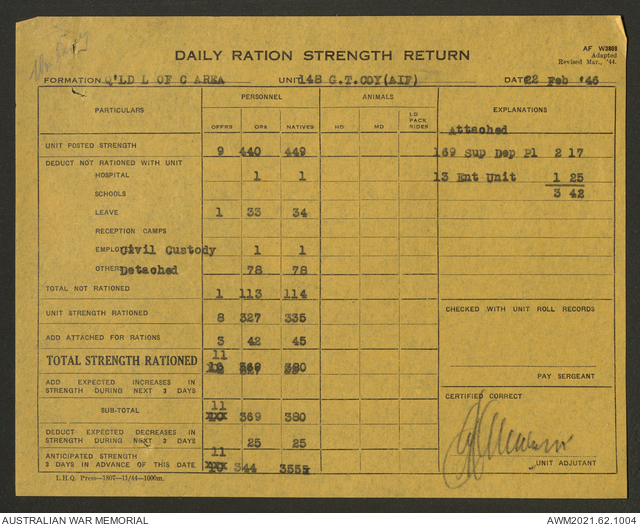 AF W3809
Adapted
Revised Mar., '44.
DAILY RATION STRENGTH RETURN
FORMATION Q'LD L OF C AREA UNIT 148 G.T.COY(AIF) DATE 22 Feb '46
PARTICULARS PERSONNEL ANIMALS EXPLANATIONS
OFFRS ORs NATIVES HD MD LD PACK RIDES
Attached
UNIT POSTED STRENGTH 9 440 449 169 Sup Dep Pl 2 17
DEDUCT NOT RATIONED WITH UNIT
HOSPITAL 1 1 13 Ent Unit 1 25
SCHOOLS 3 42
LEAVE 1 33 34
RECEPTION CAMPS
EMPLO Civil Custody 1 1
OTHER Detached 78 78
TOTAL NOT RATIONED 1 113 114
UNIT STRENGTH RATIONED 8 327 335
CHECKED WITH UNIT ROLL RECORDS
ADD ATTACHED FOR RATIONS 3 42 45
TOTAL STRENGTH RATIONED 11 369 380
PAY SERGEANT
ADD EXPECTED INCREASES IN
STRENGTH DURING NEXT 3 DAYS
CERTIFIED CORRECT
SUB-TOTAL 11 369 380
DEDUCT EXPECTED DECREASES IN
STRENGTH DURING NEXT 3 DAYS 25 25
ANTICIPATED STRENGTH 11
3 DAYS IN ADVANCE OF THIS DATE 10 344 355
UNIT ADJUTANT
L.H.Q. Press—1807—11/44—1000m.
AUSTRALIAN WAR MEMORIAL AWM2021.62.1004